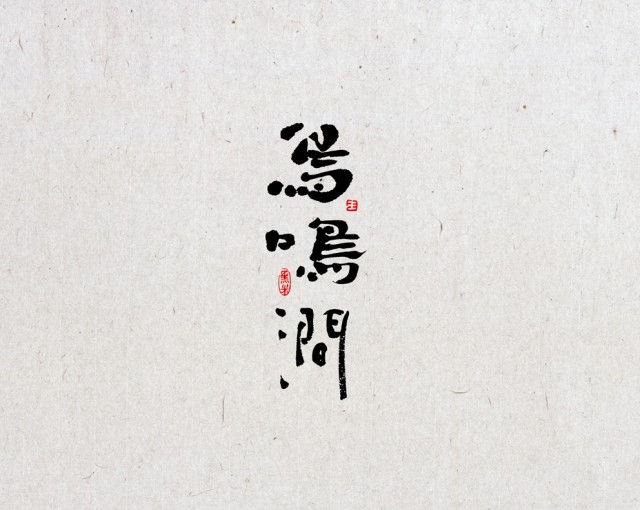 鳥
鳴
澗